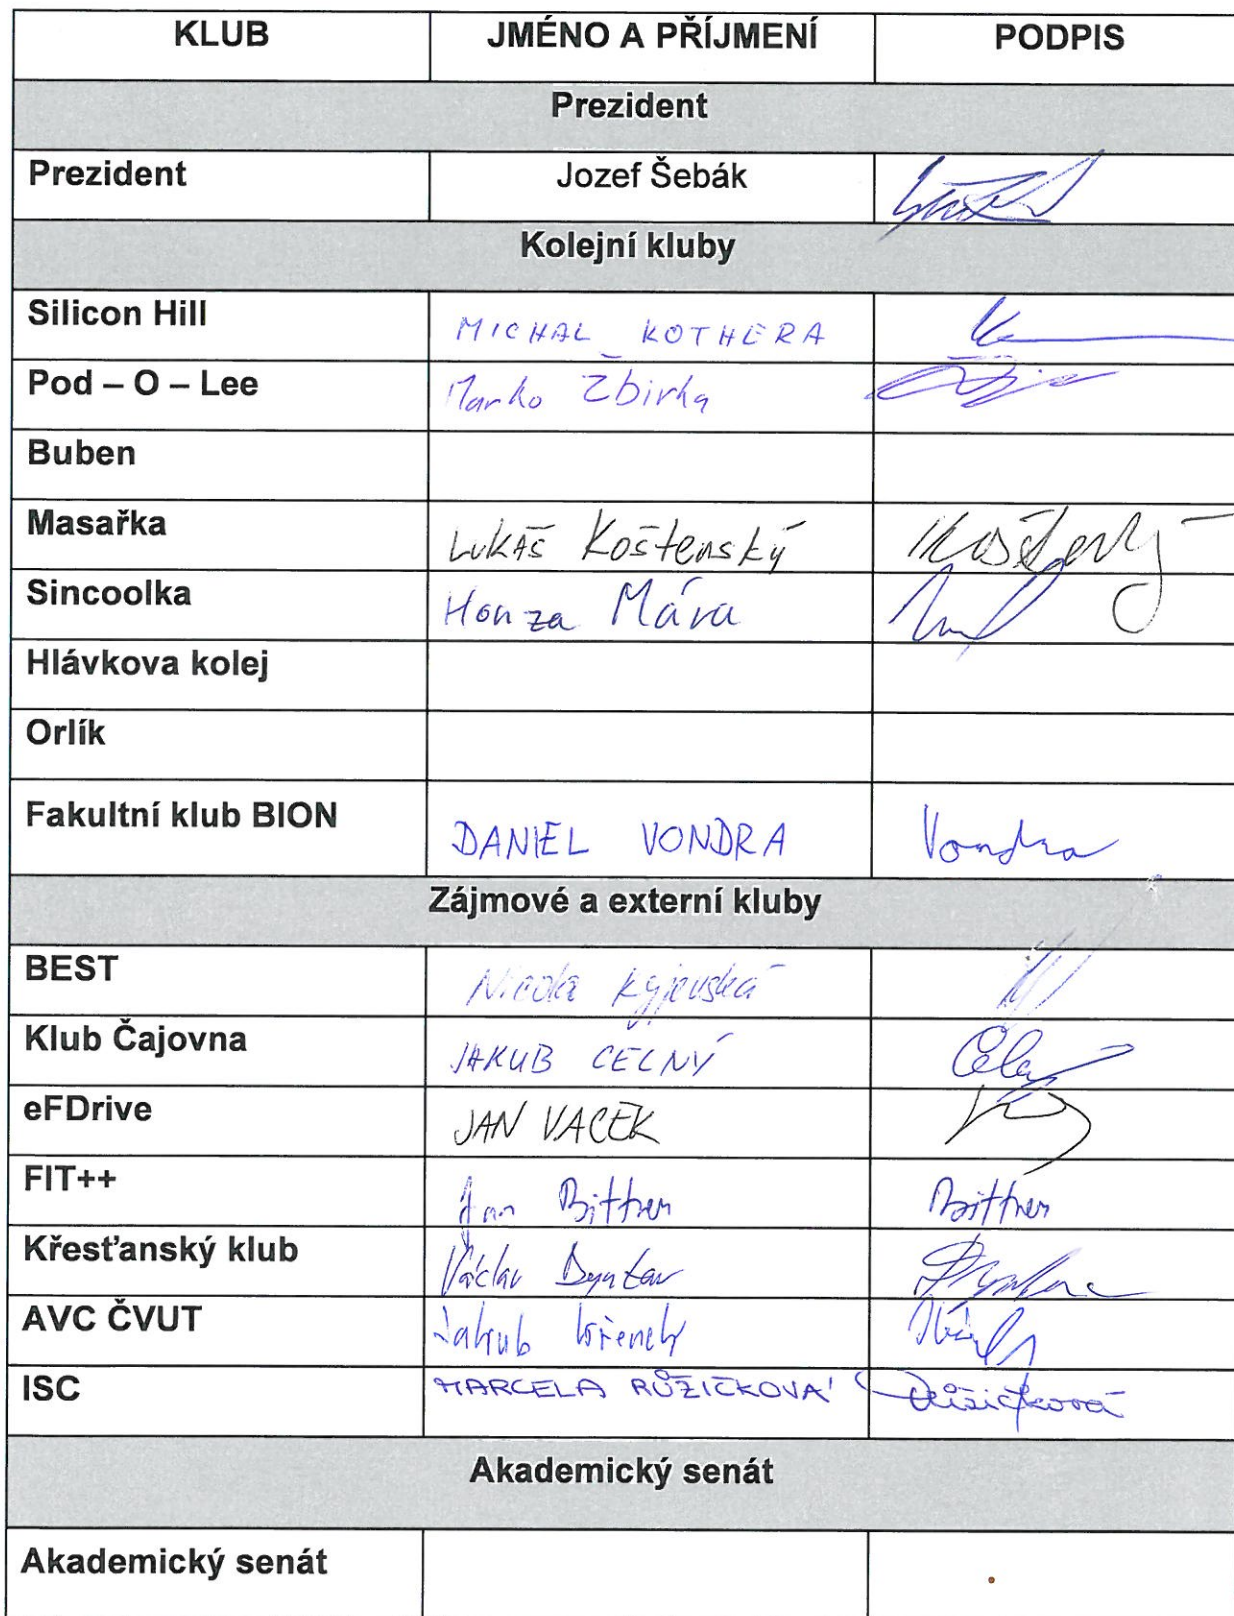 KLUB JMÉNO A PŘÍJMENÍ PODPIS
Prezident
Prezident Jozef Šebák
Kolejní kluby
Silicon Hill MICHAL KOTHERA
Pod – O – Lee Marko Žbirka
Buben
Masařka LUKÁŠ Koštenský
Sincoolka Honza Mára
Hlávkova kolej
Orlík
Fakultní klub BION DANIEL VONDRA Vondra
Zájmové a externí kluby
BEST Nicola Kyjevská
Klub Čajovna JAKUB CELNÝ
eFDrive JAN VACEK
FIT++ Jan Bittner Bittner
Křesťanský klub Václav
AVC ČVUT Jakub
ISC MARCELA RŮŽIČKOVÁ Růžičková
Akademický senát
Akademický senát